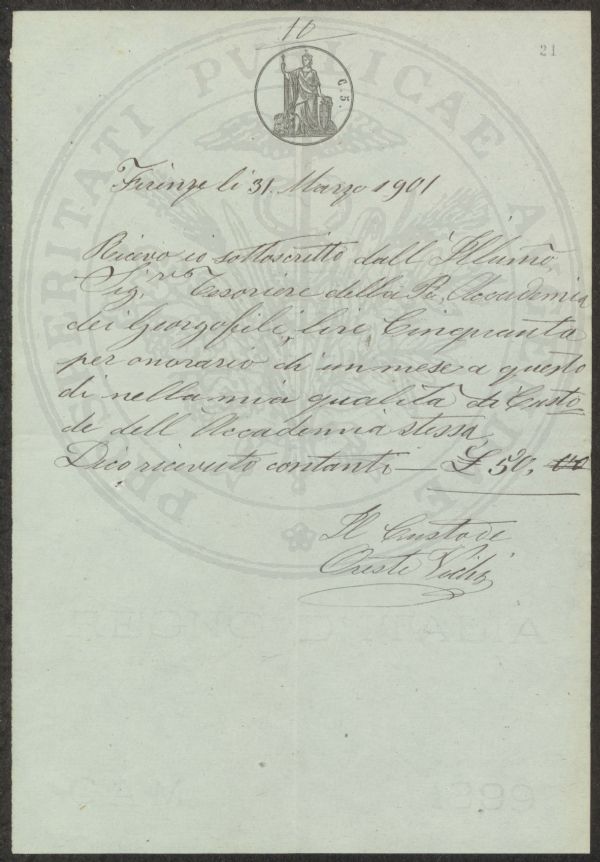 10
21
C. 5.
PROSPERITATI PUBLICAE AUGENDAE
Firenze li 31. Marzo 1901
Ricevo io sottoscritto dall'Illumo
Sig.re Tesoriere della R. Accademia
dei Georgofili, lire Cinquanta
per onorario di un mese a questo
dì nella mia qualità di Custo
de dell'Accademia stessa,
Dico ricevuto contanti — £ 50,
Il Custode
Oreste